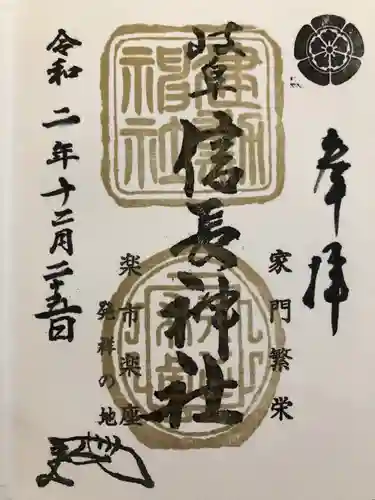 奉拝
家門繁栄
岐阜
信長神社
建勲
神社
楽市楽座
発祥の地
令和二年十二月二十五日